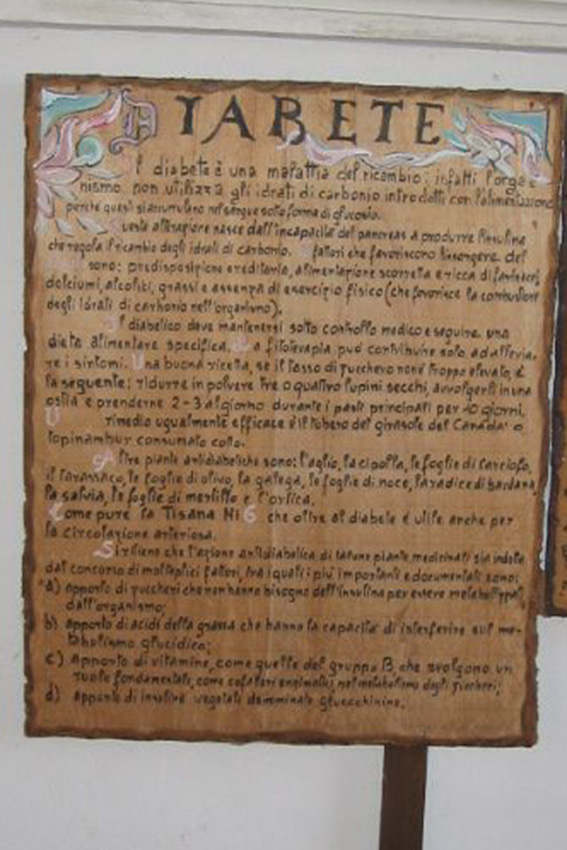 DIABETE
Il diabete è una malattia del ricambio: infatti l'orga-
nismo non utilizza gli idrati di carbonio introdotti con l'alimentazione
perché questi si accumulano nel sangue sotto forma di glucosio.
Questa alterazione nasce dall'incapacità del pancreas a produrre l'insulina
che regola il ricambio degli idrati di carbonio. I fattori che favoriscono l'insorgere del
sono: predisposizione ereditaria, alimentazione scorretta e ricca di farinacei,
dolciumi, alcolici, grassi e assenza di esercizio fisico (che favorisce la combustione
degli idrati di carbonio nell'organismo).
Il diabetico deve mantenersi sotto controllo medico e seguire una
dieta alimentare specifica. La fitoterapia può contribuire solo ad allevia-
re i sintomi. Una buona ricetta, se il tasso di zucchero non è troppo elevato, è
la seguente: ridurre in polvere tre o quattro lupini secchi, avvolgerli in una
ostia e prenderne 2-3 al giorno durante i pasti principali per 10 giorni.
Un rimedio ugualmente efficace è il tubero del girasole del Canada' o
topinambur consumato cotto.
Altre piante antidiabetiche sono: l'aglio, la cipolla, le foglie di carciofo,
il tarassaco, le foglie di olivo, la galega, le foglie di noce, la radice di bardana,
la salvia, le foglie di mirtillo e l'ortica.
Come pure la Tisana N: 6 che oltre al diabete è utile anche per
la circolazione arteriosa.
Si ritiene che l'azione antidiabetica di talune piante medicinali sia indotta
dal concorso di molteplici fattori, tra i quali i più importanti e documentati sono:
a) apporto di zuccheri che non hanno bisogno dell'insulina per essere metabolizzati
dall'organismo;
b) apporto di acidi della grassa che hanno la capacità di interferire sul me-
tabolismo glucidico;
c) apporto di vitamine, come quelle del gruppo B, che svolgono un
ruolo fondamentale, come cofattori enzimatici, nel metabolismo degli zuccheri;
d) apporto di insuline vegetali denominate glucochinine.